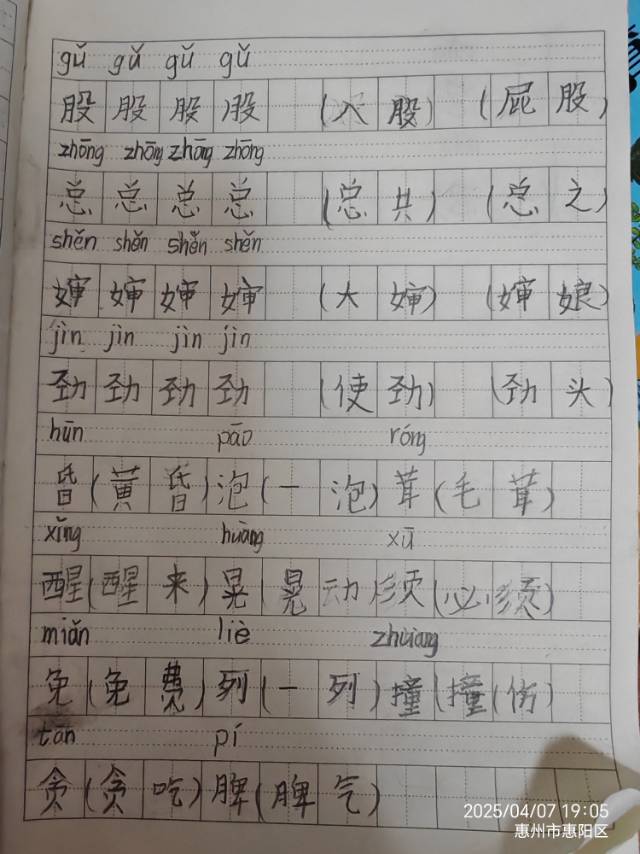 gǔ gǔ gǔ gǔ
股股股股 (入股) (屁股)
zhōng zhōng zhōng zhōng
总总总总 (总共) (总之)
shěn shěn shěn shěn
婶婶婶婶 (大婶) (婶娘)
jìn jìn jìn jìn
劲劲劲劲 (使劲) (劲头)
hūn pāo róng
昏(黄昏)泡(一泡)茸(毛茸)
xǐng huàng xū
醒(醒来)晃(晃动须(必须)
miǎn liè zhuàng
免(免费)列(一列)撞(撞(伤)
tān pí
贪(贪吃)脾(脾气)
2025/04/07 19:05
惠州市惠阳区